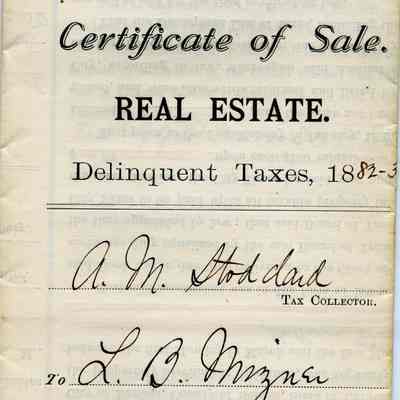 Certificate of Sale.
REAL ESTATE.
Delinquent Taxes, 1882-3
A. M. Stoddard
TAX COLLECTOR.
To L. B. Mizner